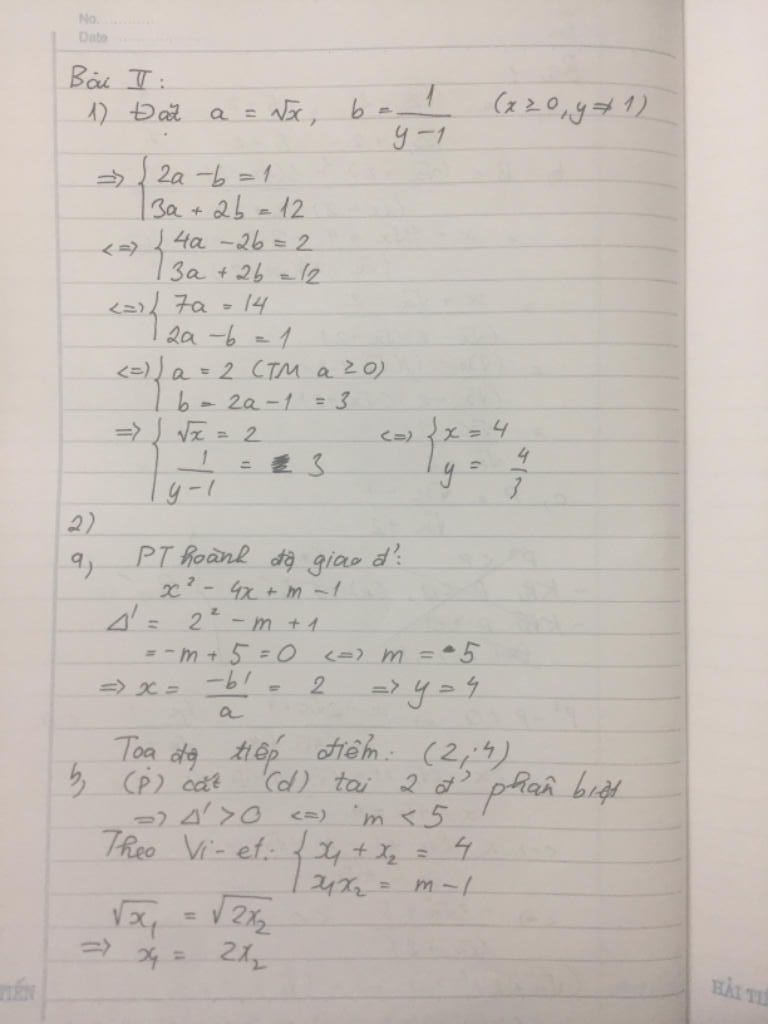 No. ............
Date ..................
Bài II:
1) Đặt a = √x, b = 1/(y-1) (x ≥ 0, y ≠ 1)
=> { 2a - b = 1
3a + 2b = 12
<=> { 4a - 2b = 2
3a + 2b = 12
<=> { 7a = 14
2a - b = 1
<=> { a = 2 (TM a ≥ 0)
b = 2a - 1 = 3
=> { √x = 2 <=> { x = 4
1/(y-1) = 3 y = 4/3
2)
a, PT hoành độ giao đ':
x² - 4x + m - 1
Δ' = 2² - m + 1
= -m + 5 = 0 <=> m = 5
=> x = -b'/a = 2 => y = 4
Toạ độ tiếp điểm: (2; 4)
b, (P) cắt (d) tại 2 đ' phân biệt
=> Δ' > 0 <=> m < 5
Theo Vi-et: { x₁ + x₂ = 4
x₁x₂ = m - 1
√x₁ = √2x₂
=> x₁ = 2x₂
TIẾN
HẢI TIẾ